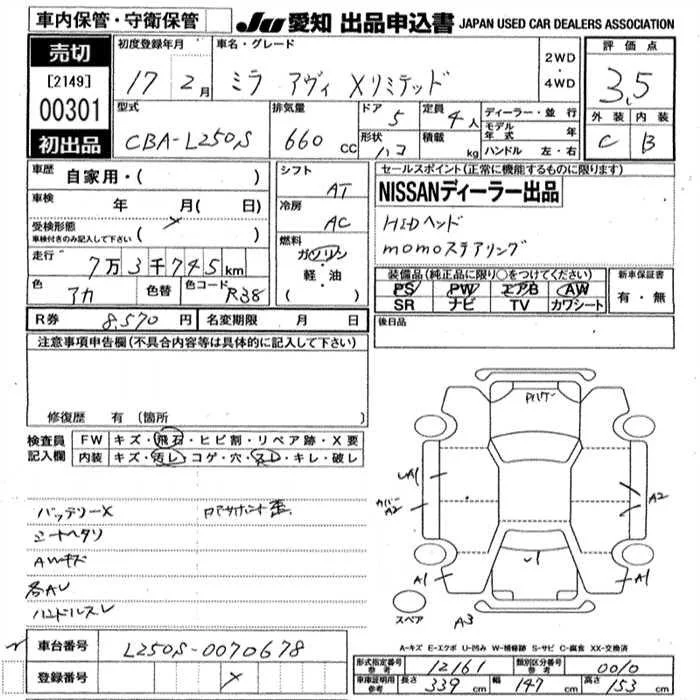 車内保管・守衛保管
愛知 出品申込書 JAPAN USED CAR DEALERS ASSOCIATION
売切
[2149]
00301
初出品
初度登録年月
17年 2月
車名・グレード
ミラ アヴィ Xリミテッド
2WD
・
4WD
評価点
3.5
型式
CBA-L250S
排気量
660 cc
ドア 5
定員 4人
形状 ハコ
積載 kg
ディーラー・並行
モデル年式 年
ハンドル 左・右
外装 内装
C B
車歴 自家用・( )
車検 年 月( 日)
受検形態
車検付きのみ記入して下さい ( )
走行 7万3千745km
色 アカ 色替 色コード R38
シフト AT
冷房 AC
燃料
ガソリン
軽・油
( )
セールスポイント(正常に機能するものに限ります)
NISSANディーラー出品
HIDヘッド
momoステアリング
装備品(純正品に限り○をつけてください)
PS PW エアB AW
SR ナビ TV カワシート
新車保証書
有・無
R券 8,570円 名変期限 月 日
後日品
注意事項申告欄(不具合内容等は具体的に記入して下さい)
修復歴 有(箇所
検査員
記入欄
FW キズ・飛石・ヒビ割・リペア跡・X要
内装 キズ・汚レ・コゲ・穴・スレ・キレ・破レ
バッテリーX
シートヘタリ
AWキズ
各AU
ハンドルスレ
A1
カバー
A2
A2
A1
A1
A3
スペア
A-キズ E-エクボ U-凹み W-補修跡 S-サビ C-腐食 XX-交換済
車台番号 L250S-0070678
登録番号
形式指定番号 12161 類別区分番号 0010
車庫証明用参考 長さ 339cm 幅 147cm 高さ 153cm